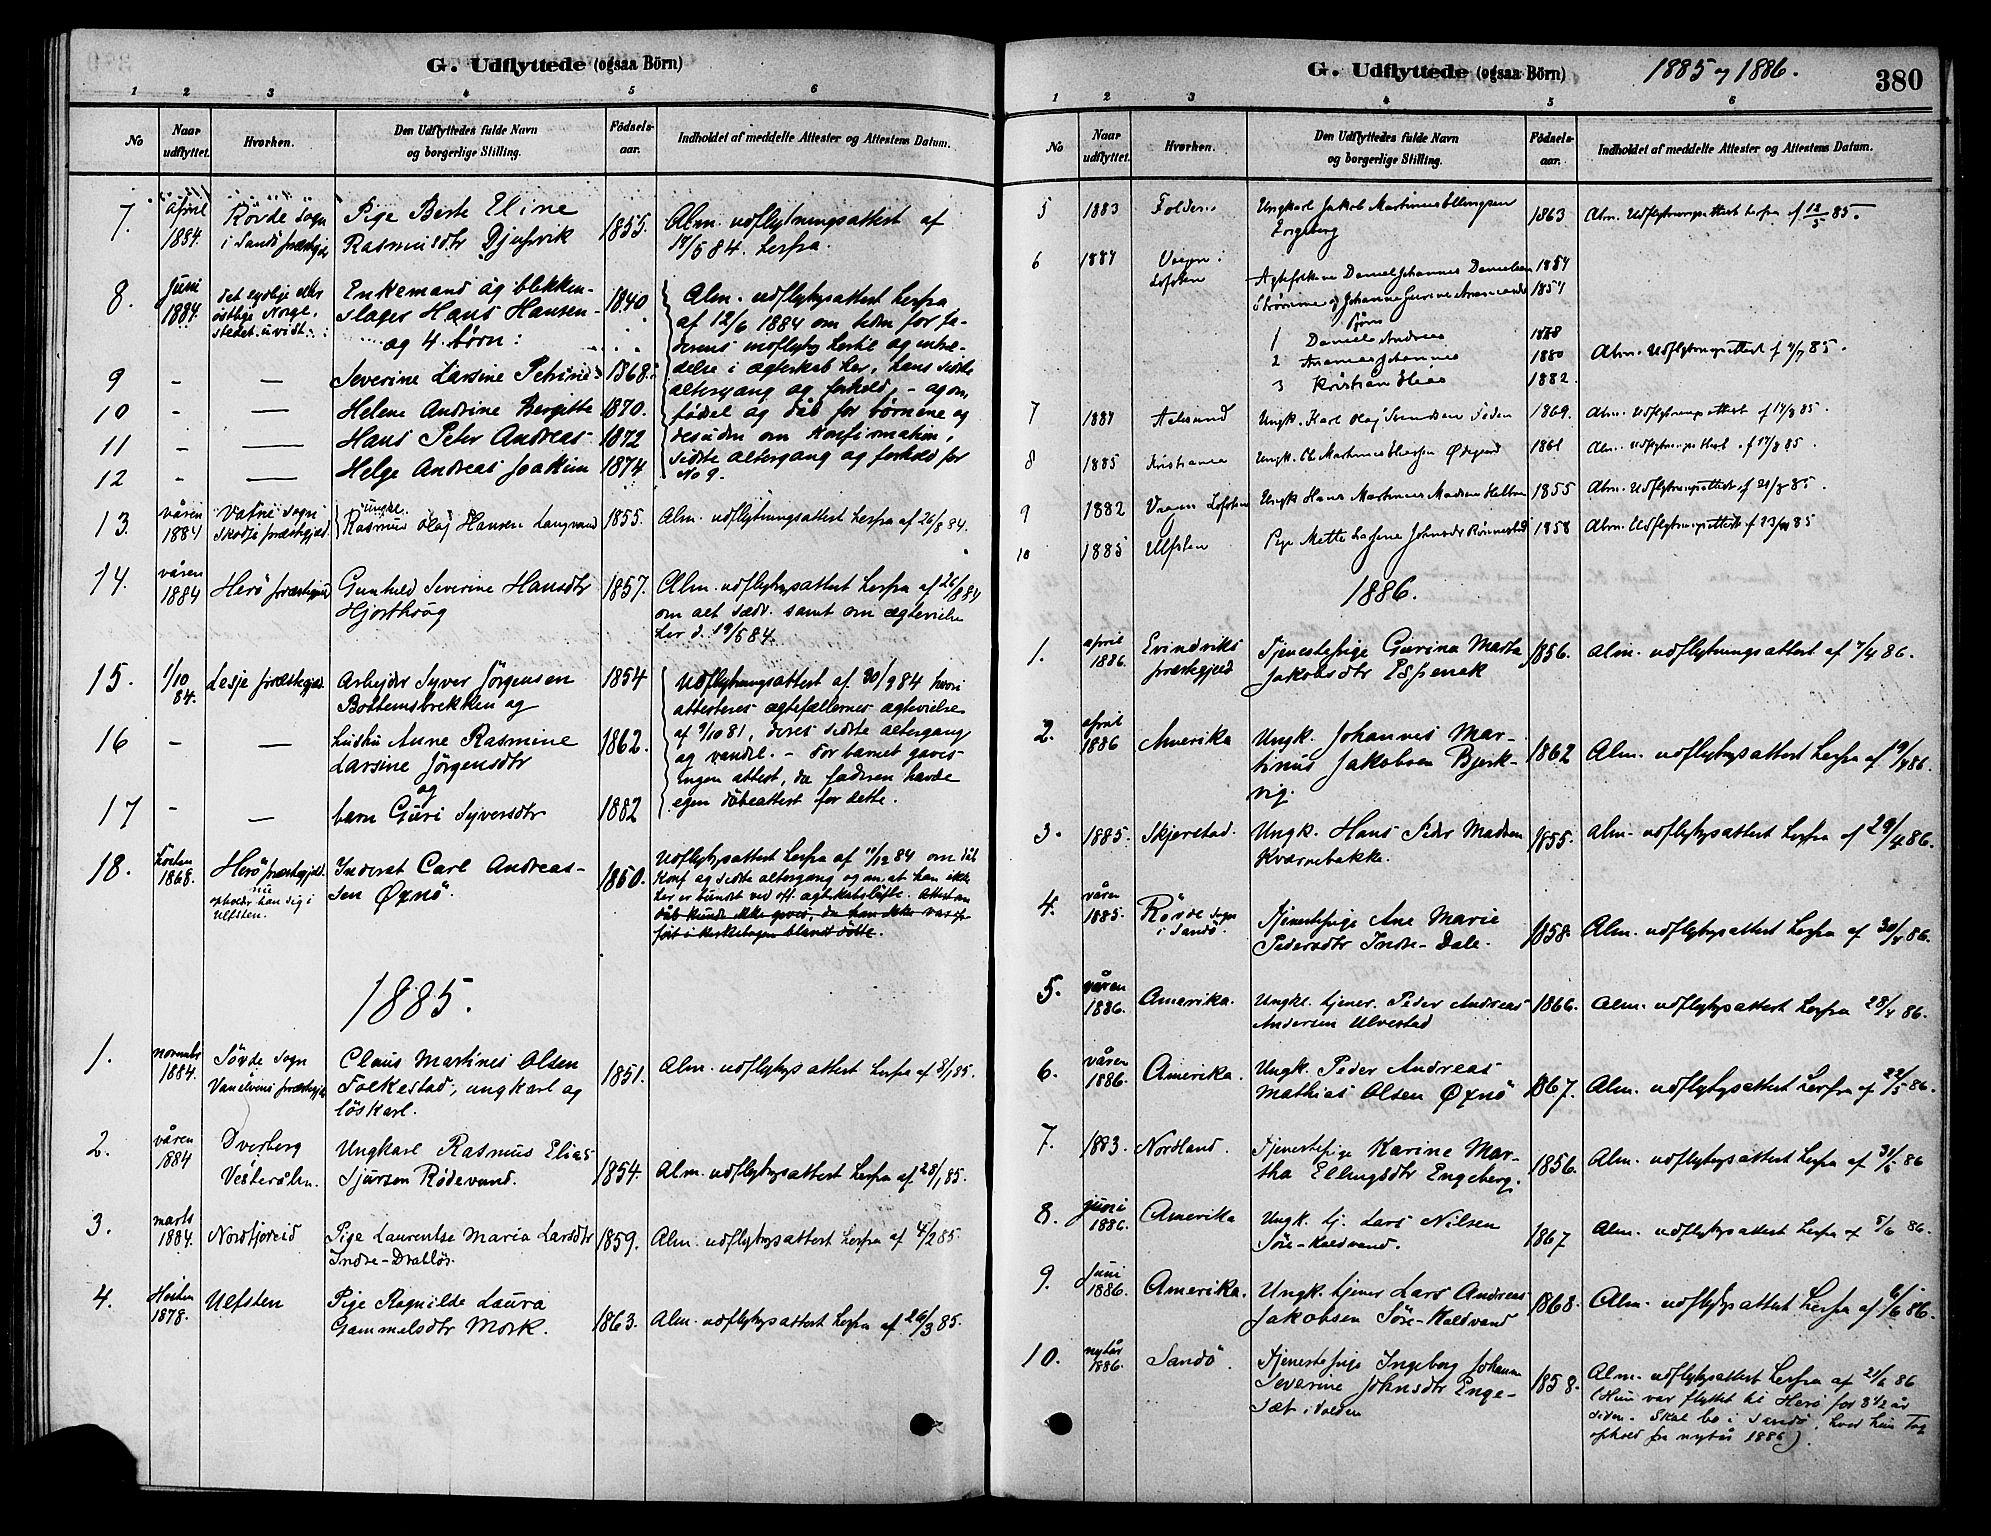 G. Udflyttede (ogsaa Börn)
1 2 3 4 5 6
No
Naar udflyttet.
Hvorhen.
Den Udflyttedes fulde Navn og borgerlige Stilling.
Födsels-aar.
Indholdet af meddelte Attester og Attestens Datum.
7. april 1884. Røvde sogn Pige Berte Eline 1855. Alm. udflytningsattest af
i Sandö præstegjeld Rasmusdtr Djupvik 17/5 84. herfra.
8. juni 1884. det sydlige eller Enkemand og blikken- 1840 Alm. udflytgsattest herfra
østlige Norge, slager Hans Hansen af 12/6 1884 om tiden for fa-
stedet uvidst. og 4 börn: derens indflytg hertil og indtræ-
9 - — Severine Larsine Petrine 1868. delse i ægteskab her, hans sidste
altergang og forhold, - og om
10 - — Helene Andrine Bergitte 1870. födsel og dåb for börnene og
11 - — Hans Peter Andreas 1872 desuden om konfirmation,
12 - — Helge Andreas Joakim 1874 sidste altergang og forhold for
No 9.
13. våren 1884 Vatne sogn ungk. 1855. Alm. udflytningsattest herfra af 26/8 84.
Skodje præstegjeld. Rasmus Olaj Hansen Langvand
14. våren 1884 Herö præstegjeld Gunhild Severine Hansdtr 1857. Alm. udflytgsattest herfra af 26/8 84
Hjorthoug om alt sædv. samt om ægtevielse
her d. 19/5 84.
15. 1/10 84. Lesje præstegjeld. Arbejder Syver Jörgensen 1854 Udflytningsattest af 30/9 84 hvori
Bottemsbrekken og attesteres ægtefællernes ægtevielse
16 - — hustru Anne Rasmine 1862. af 9/10 81, deres sidste altergang
Larsine Jörgensdtr og vandel. - For barnet gaves
og ingen attest, da faderen havde
17 - — barn Guri Syversdtr 1882 egen dåbsattest for dette.
18. høsten 1868. Herö præstegjeld. Inderst Carl Andreas- 1850. Udflytgsattest herfra af 11/12 84 om dåb
nu opholder han sig i Ulfsten. sen Øxnö. Konf og sidste altergang og om, at han ikke
her er bundet ved off. ægteskabslöfte. Attest om
dåb kunde ikke gives, da han ikke var op-
fört i kirkebogen blandt döbte.
1885.
1. novembr 1884. Sövde sogn Claus Martines Olsen 1851. Alm. udflytgsattest herfra af 8/1 85.
Vanelvens præstegjeld Folkestad, ungkarl og
löskarl.
2. våren 1884 Dverberg Ungkarl Rasmus Elias 1854. Alm. udflytgsattest herfra af 28/1 85.
Vesterålen. Sjursen Rödevand.
3. marts 1884. Nordfjoreid Pige Laurentse Maria Larsdtr 1859. Alm. udflytgsattest herfra af 4/2 85.
Indre-Drablös.
4. Hösten 1878. Ulfsten Pige Ragnilde Laura 1863. Alm. udflytgsattest herfra af 26/3 85.
Gammelsdtr Mork.
G. Udflyttede (ogsaa Börn) 1885 og 1886. 380
1 2 3 4 5 6
No
Naar udflyttet.
Hvorhen.
Den Udflyttedes fulde Navn og borgerlige Stilling.
Födsels-aar.
Indholdet af meddelte Attester og Attestens Datum.
5 1883 Folden Ungkarl Jakob Martinus Ellingsen 1863 Alm. Udflytningsattest herfra af 12/5 85.
6 1884 Vaagan i Ægtefolkene Daniel Johannes Danielsen 1854
Lofoten Strömme og Johanne 1854
Börn
1 Daniel Andreas 1878
2 Johannes 1880 Alm. Udflytningsattest af 4/7 85.
3 Kristian Elias 1882.
7 1884 Aalesund Ungk. Karl Olaj 1869. Alm. Udflytningsattest af 14/8 85.
8 1885 Kristiania Ungk. Ole Martinus Ødegaard 1861 Alm. Udflytningsattest af 17/8 85.
9 1882 Vaagan Lofoten Ungk Hans Martinus Madsen 1855 Alm. Udflytningsattest af 21/8 85.
10 1885 Ulfsten Pige Mette Johnsdtr Rönnestad 1858 Alm. Udflytningsattest af 23/ 85
1886.
1. april 1886. Evindviks Tjenestepige Gurina Marta 1856. Alm. udflytningsattest af 7/4 86.
præstegjeld Jakobsdtr Espenak
2. april 1886 Amerika Ungk. Johannes Mar- 1862 Alm. udflytgsattest herfra af 19/4 86.
tinus Jakobsen Bjerk-
vig.
3. 1885. Skjerstad. Ungk. Hans Peder Madsen 1855. Alm. udflytgsattest herfra af 29/4 86.
Kværnebakke.
4. våren 1885. Røvde sogn Tjenestepige Ane Marie 1858. Alm. udflytgsattest herfra af 30/4 86.
i Sandö. Pedersdtr Indre-Dale.
5. våren 1886. Amerika. Ungkl. tjener. Peder Andreas 1866. Alm. udflytgsattest herfra 28/4 86.
Andersen Ulvestad
6. våren 1886. Amerika. Ungk. Peder Andreas 1867. Alm. udflytgsattest herfra af 22/5 86.
Mathias Olsen Øxnö
7. 1883. Nordland. Tjenestepige Karine Mar- 1856. Alm. udflytgsattest herfra af 31/5 86
tha Ellingsdtr Engeberg.
8. juni 1886. Amerika Ungk. tj. Lars Nilsen 1867 Alm. udflytgsattest herfra af 5/6 86.
Söre-Kaldvand.
9. Juni 1886. Amerika. Ungk. tjener Lars Andreas 1868. Alm. udflytgsattest herfra af 6/6 86.
Jakobsen Söre-Kaldvand
10. nytår 1886. Sandö. Tjenestepige Ingeborg Johanne 1858. Alm. udflytgsattest herfra af 21/6 86
Severine Johnsdtr Enge- (Hun var flyttet til Herö for 3 1/2 år
sæt i Volden siden. Skal bo i Sandö, hvor hun tog
ophold fra nytår 1886).